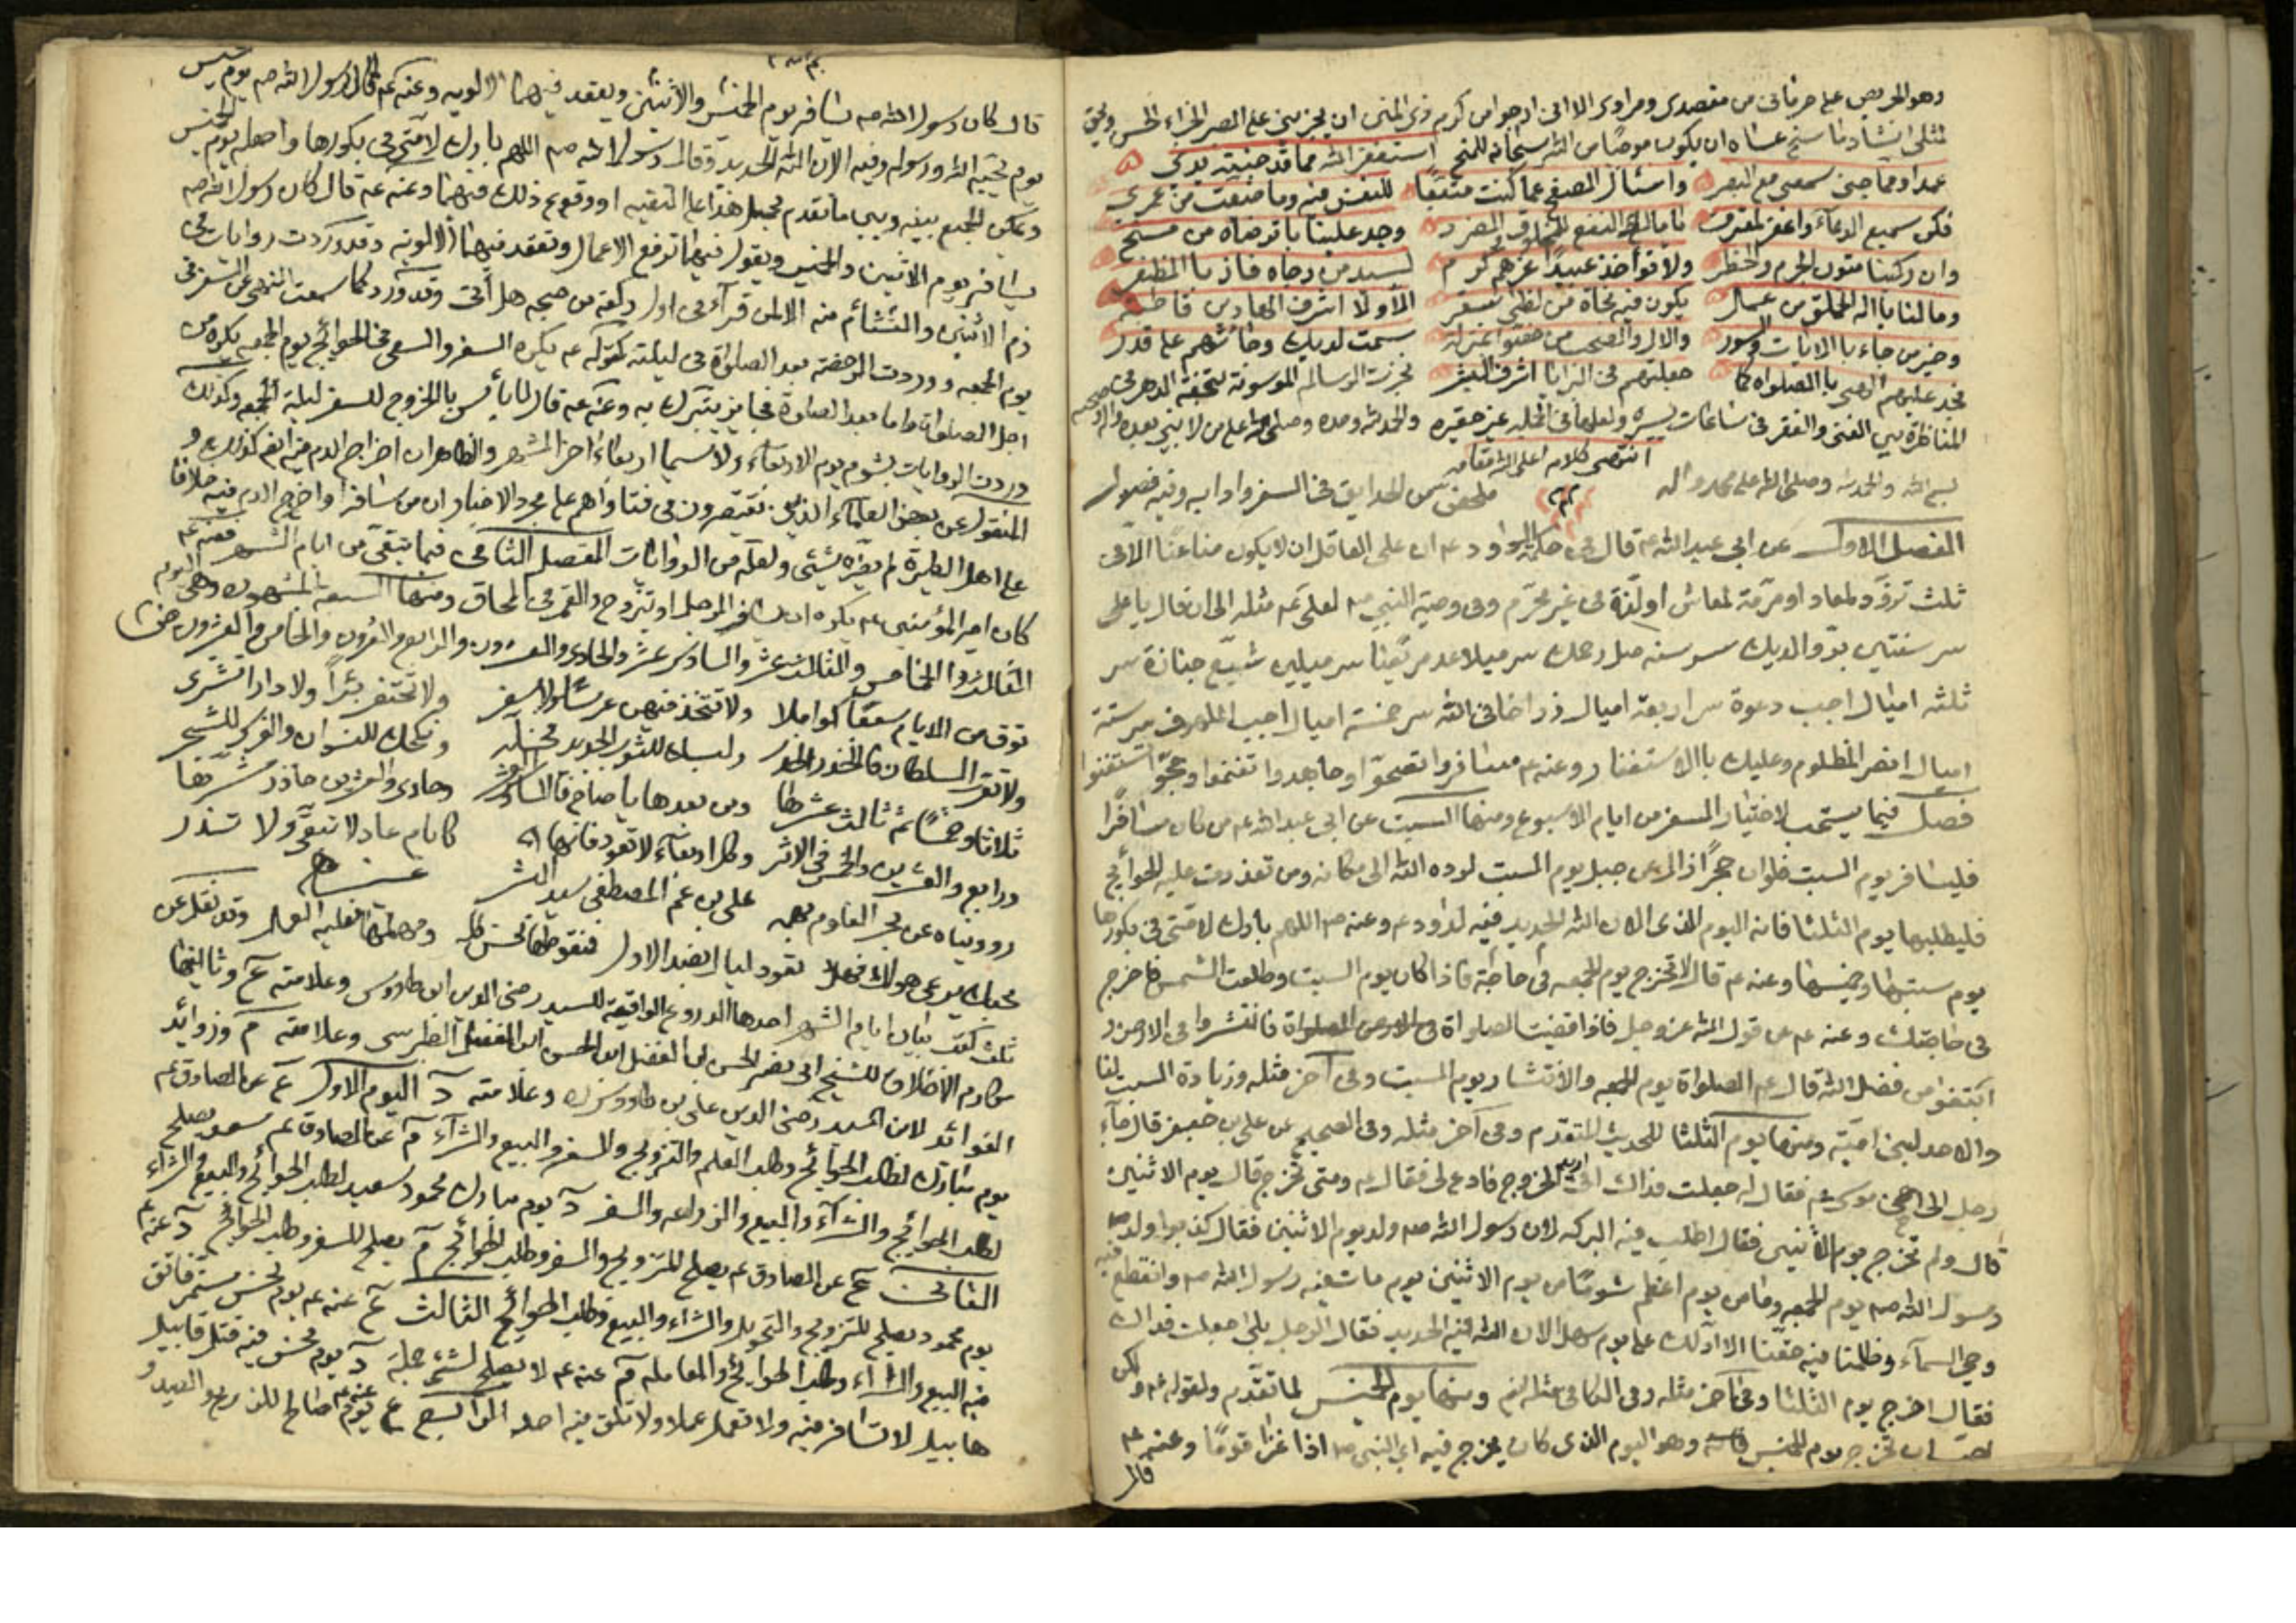 وهو الحريص على حرماني من مقصدي ومرادي الا اني ارجوا من كرم ذي المنن ان يجزيني على الصبر الجزاء الحسن ويحق
لمثلي انشاد ما سنح عساه ان يكون من الله سبحانه للمنح استغفر الله مما قد جنيته يدي
عمدا ومما جنى سمعي مع البصر واسئال الصفح عما كنت متفقا للنفس فيه وما ضيعت من عمري
فكن سميع الدعاء واغفر لمقترف يا مالك النفع للمخلوق والضرر وجد علينا بما ترضاه من منح
وان ركبنا متون الجرم والخطر ولا تؤاخذ عبيدا غرهم كرم لسيد من رجاه فاز بالظفر
وما لنا يا اله الخلق من عمل يكون فيه نجاة من لظى سقر الا ولا اشرف الهادين فاطبة
وخير من جاء بالايات والسور والال والصحب من حقوا بمنزلة سمت لديك وحاشهم على قدر
فجد عليهم الهي بالصلواة كما جعلتهم في البرايا اشرف البشر نجزت الرسالة الموسومة بتحفة الدهر في
المناظرة بين الغنى والفقر في ساعات يسيره ولعلها في الجلية غير حقيره والحمد لله وحده وصلى الله على من لا نبي بعده واله
انتهى كلامه اعلى الله مقامه
بسم الله والحمد لله وصلى الله على محمد واله ملحض من الحدايق في السفر وادابه وفيه فصول
الفصل الاول عن ابي عبد الله ع قال في حكمة ال داود ع ان على العاقل ان لا يكون ضاعنا الا في
ثلث تزود لمعاد او مرمة لمعاش او لذة في غير محرم وفي وصية النبي ص لعلي ع مثله الى ان قال يا علي
سر سنتين بر والديك سر سنه صل رحمك سر ميلا عد مريضا سر ميلين شيع جنازة سر
ثلثه اميال اجب دعوة سر اربعة اميال زر اخا في الله سر خمسة اميال اجب الملهوف سر ستة
اميال انصر المظلوم وعليك بالاستغفار وعنه ع سافروا تصحوا وجاهدوا تغنموا وحجوا تستغنوا
فصل فيما يستحب لاختيار السفر من ايام الاسبوع ومنها السبت عن ابي عبد الله ع من كان مسافرا
فليسافر يوم السبت فلو ان حجرا زال عن جبل يوم السبت لرده الله الى مكانه ومن تعذرت عليه الحوائج
فليطلبها يوم الثلثا فانه اليوم الذي الان الله الحديد فيه لداود ع وعنه ص اللهم بارك لامتي في بكورها
يوم سبتها وخميسها وعنه ع قال لا تخرج يوم الجمعه في حاجة فاذا كان يوم السبت وطلعت الشمس فاخرج
في حاجتك وعنه ع عن قول الله عز وجل فاذا قضيت الصلواة فانتشروا في الارض و
ابتغوا من فضل الله قال ع الصلواة يوم الجمعه والانتشار يوم السبت وفي آخر مثله وزيادة السبت لنا
والاحد لبني امية ومنها يوم الثلثا للحديث المتقدم وفي آخر مثله وفي الصحيح عن علي بن جعفر قال جاء
رجل الى اخي موسى ع فقال له جعلت فداك اني اريد الخروج فادع لي فقال ع ومتى تخرج قال يوم الاثنين
قال ولم تخرج يوم الاثنين فقال اطلب فيه البركه لان رسول الله ص ولد يوم الاثنين فقال كذبوا ولد
رسول الله ص يوم الجمعه وما من يوم اعظم شوما من يوم الاثنين يوم مات فيه رسول الله ص وانقطع فيه
وحي السمآء وظلمنا فيه حقنا الا ادلك على يوم سهل الان الله فيه الحديد فقال الرجل بلى جعلت فداك
فقال اخرج يوم الثلثا وفي آخر مثله وفي الكافي مثله ومنها يوم الخميس لما تقدم ولقوله ع ولكن
تخرج يوم الخميس وهو اليوم الذي كان يخرج فيه النبي ص اذا غزا قوما وعنه ع
قال
قال كان رسول الله ص يسافر يوم الخميس والاثنين ويعقد فيهما الالويه وعنه ع قال قال رسول الله ص يوم الخميس
يوم يحبه الله ورسوله وفيه الان الله الحديد وقال رسول الله ص اللهم بارك لامتي في بكورها واجعله يوم الخميس
ويمكن الجمع بينه وبين ما تقدم بحمل هذا على التقيه او وقوع ذلك فيهما وعنه ع قال كان رسول الله ص
يسافر يوم الاثنين والخميس ويقول فيهما ترفع الاعمال وتعقد فيهما الالوية وقد وردت روايات في
ذم الاثنين والتشائم منه الا لمن قرأ في اول ركعة من صبحه هل أتى وقد ورد كما سمعت النهي عن السفر في
يوم الجمعه ووردت الرخصة بعد الصلواة في ليلته كقوله ع يكره السفر والسعي في الحوائج يوم الجمعه بكره من
اجل الصلواة واما بعد الصلواة فجايز يتبرك به وعنه ع قال لا بأس بالخروج للسفر ليلة الجمعه وكذلك
وردت الروايات بشوم يوم الاربعاء ولا سيما اربعاء اخر الشهر والظاهر ان اخراج الدم فيه ايضا كذلك و
المنقول عن بعض العلماء الذين يقتصرون في فتاواهم على مجرد الاخبار ان من سافر او اخرج الدم فيه خلافا
على اهل الطيرة لم يضره شيئ ولعله من الروايات الفصل الثاني فيما يتقى من ايام الشهر فعنه ع
كان امير المؤمنين ع يكره ان يسافر الرجل او يتزوج والقمر في المحاق ومنها السبعة المشهوره وهي اليوم
الثالث والخامس والثالث عشر والسادس عشر والحادي والعشرون والرابع والعشرون والخامس والعشرون
توق من الايام سبعا كواملا ولا تتخذ فيهن عرسا ولا سفر ولا تحتفر بئرا ولا دارا تشترى
ولا تقر السلطان فالحذر الحذر ولبسك للثوب الجديد فخله ونكحك للنسوان والغرس للشجر
ثلاثا وخمسا ثم ثالث عشرها ومن بعدها يا صاح فالسادس العشر وحادي والعشرين حاذر شرها
ورابع والعشرين والخمس في الاثر وكل اربعاء لا تعود فانها كايام عاد لا تبقي ولا تذر
رويناه عن بحر العلوم علي بن عم المصطفى سيد البشر
محبك يرعى هواك فهل تعود ليال بضد الاول فنقوطها نحس كله ومهملها فعليه العمل وقد نقل عن
ثلث كتب بيان ايام الشهر احدها الدروع الواقية للسيد رضي الدين ابن طاووس وعلامته ع وثانيها
مكارم الاخلاق للشيخ ابي نصر الحسن ابن الفضل ابن الحسن الطبرسي وعلامته م وزوائد
الفوائد لابن السيد رضي الدين علي بن طاووس وعلامته د اليوم الاول ع عن الصادق ع
يوم مبارك لطلب الحوائج وطلب العلم والتزويج والسفر والبيع والشرآء م عن الصادق ع سعد يصلح
لطلب الحوائج والشرآء والبيع والزراعه والسفر د يوم مبارك محمود سعيد لطلب الحوائج والبيع والشراء
الثاني ع عن الصادق ع يصلح للتزويج والسفر وطلب الحوائج م يصلح للسفر وطلب الحوائج د عنه ع
يوم محمود يصلح للتزويج والتحويل والشراء والبيع وطلب الحوائج الثالث ع عنه ع يوم نحس مستمر فاتق
فيه البيع والشراء وطلب الحوائج والمعامله م عنه ع لا يصلح لشئ جملة د يوم نحس فيه قتل قابيل
هابيل لا تسافر فيه ولا تعمل عملا ولا تلق فيه احد الرابع ع عنه ع يوم صالح للزرع والصيد و